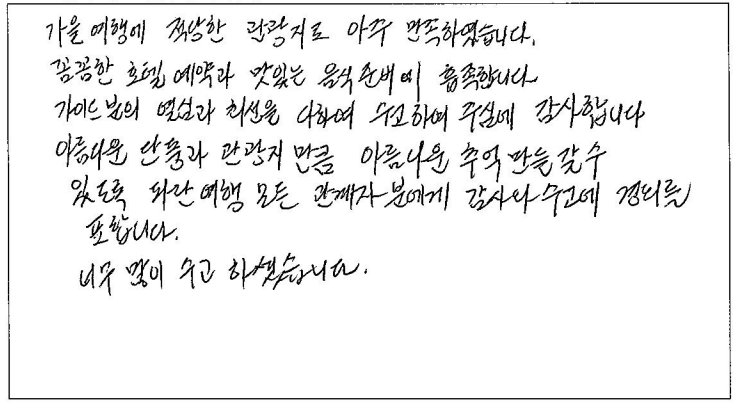 가을 여행에 적당한 관광지로 아주 만족하였습니다.
꼼꼼한 호텔 예약과 맛있는 음식 준비에 흡족합니다
가이드 분의 열심과 최선을 다하여 수고하여 주심에 감사합니다
아름다운 단풍과 관광지 만큼 아름다운 추억 만들 갈 수
있도록 파란 여행 모든 관계자 분에게 감사와 수고에 경의를
표합니다.
너무 많이 수고 하셨습니다.